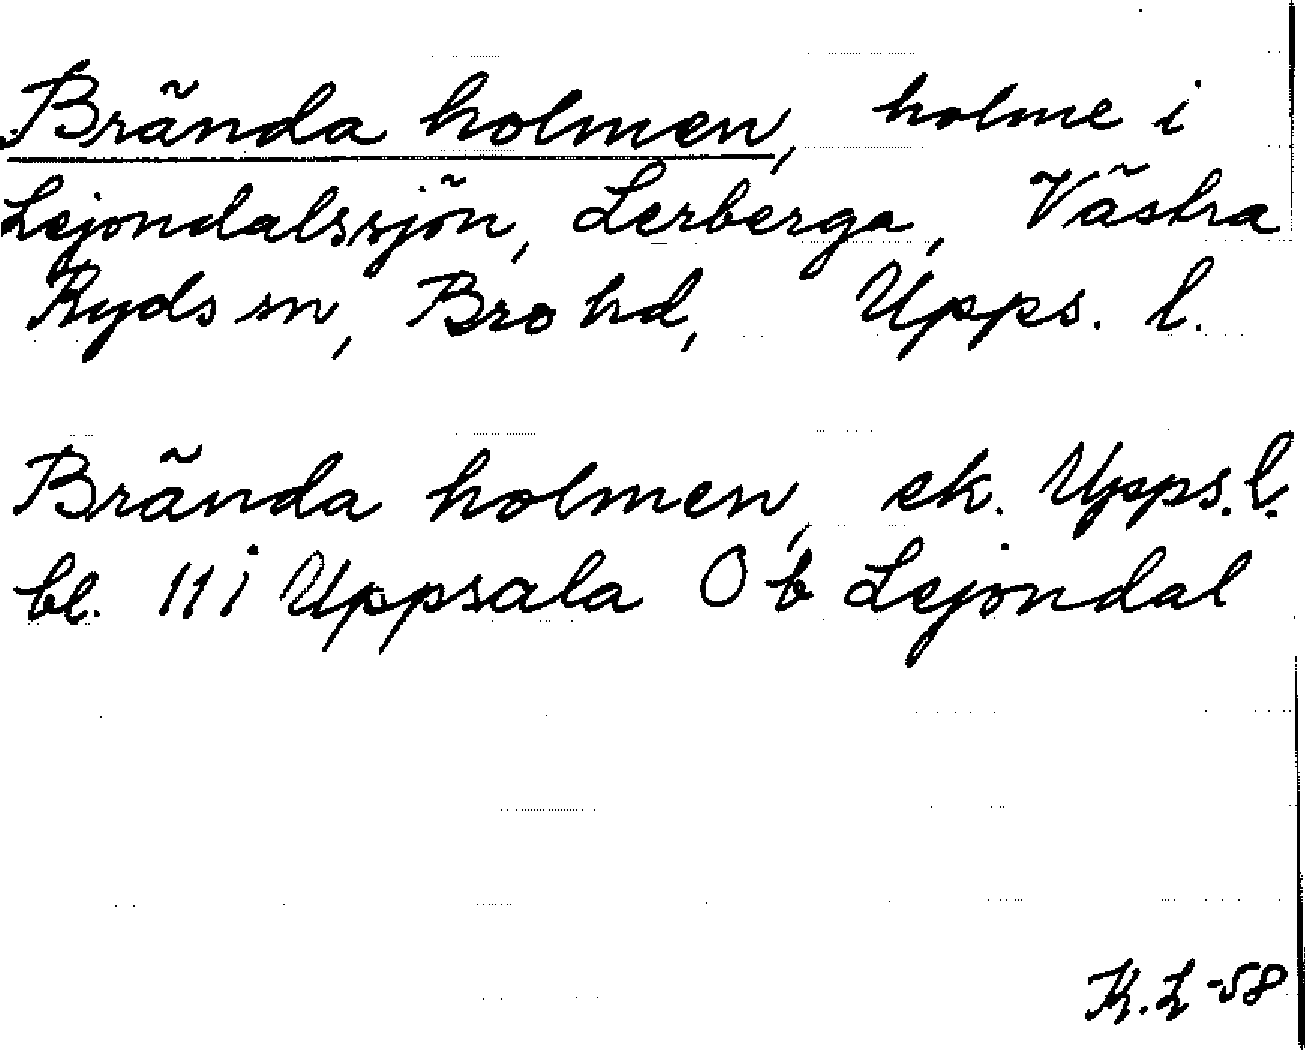 Brända holmen, holme i
Lejondalssjön, Lerberga, Västra
Ryds sn, Bro hd, Upps. l.
Brända holmen, ek. Upps. l.
bl. 11 i Uppsala Ob Lejondal
K. L -58